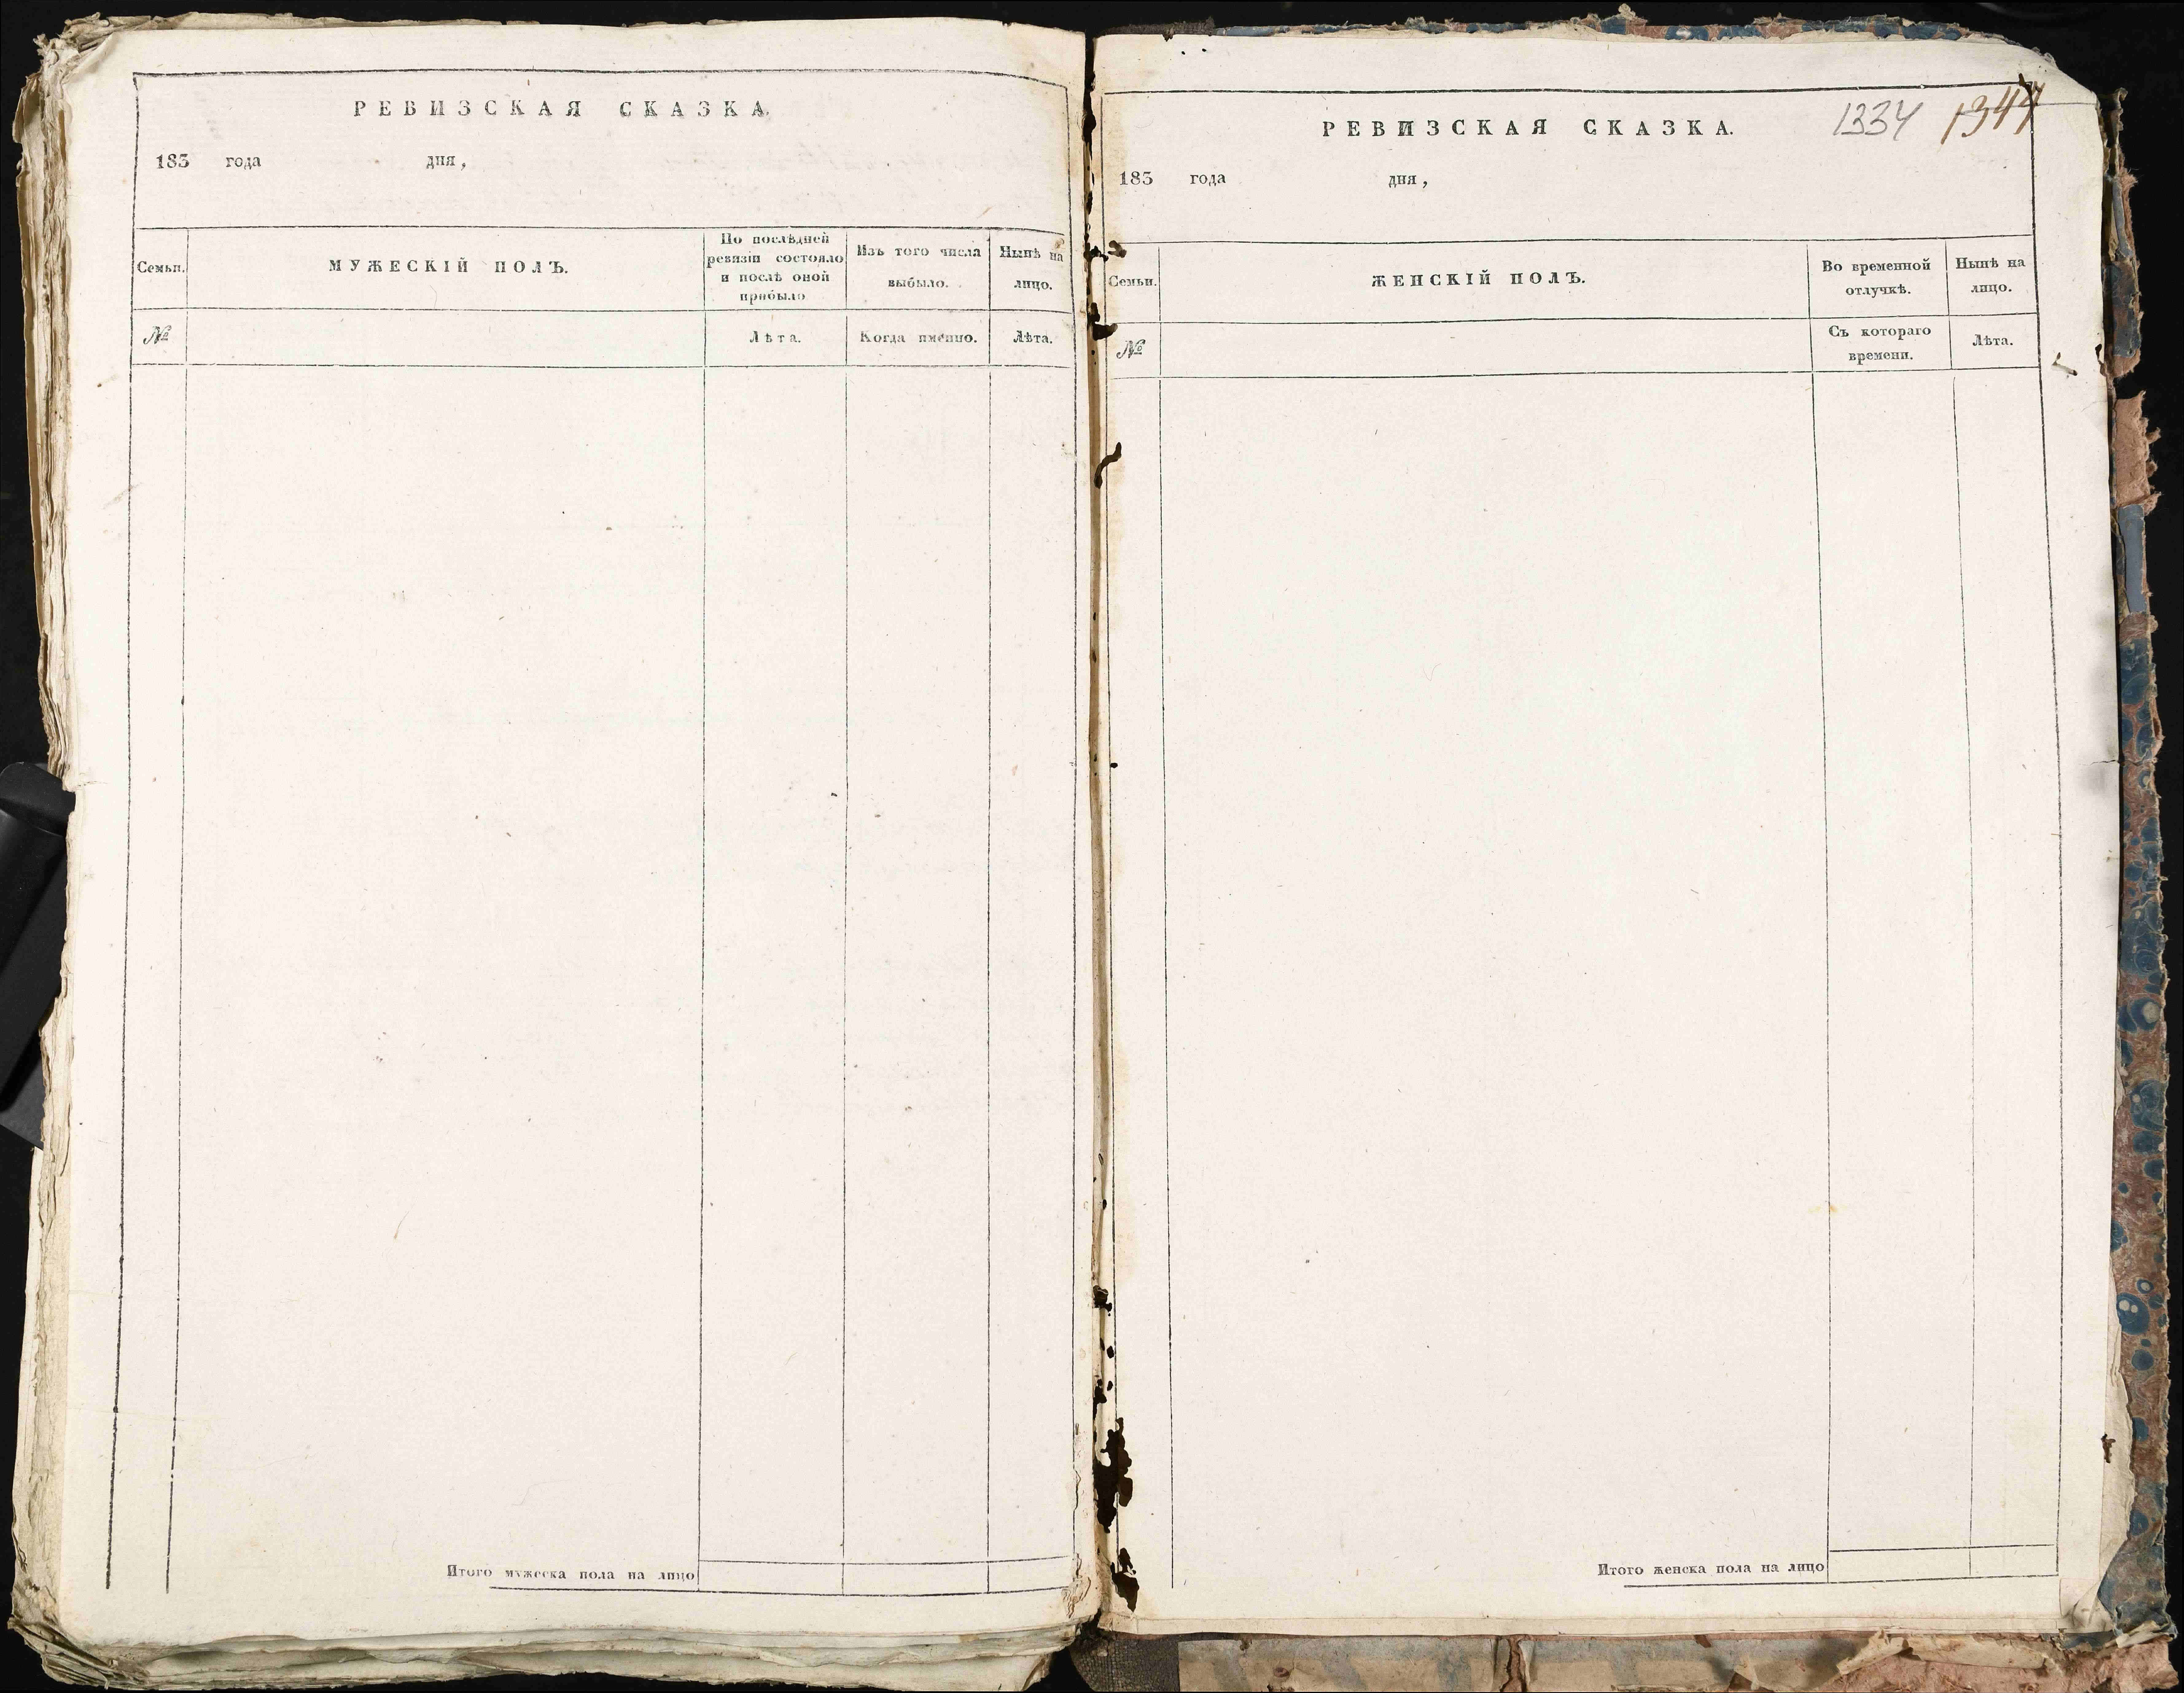 РЕВИЗСКАЯ СКАЗКА.
183 года дня,
Семьи.
МУЖЕСКІЙ ПОЛЪ.
По послѣдней
ревизіи состояло
и послѣ оной
прибыло
Изъ того числа
выбыло.
Нынѣ на
лицо.
№
Лѣта.
Когда именно.
Лѣта.
Итого мужеска пола на лицо
1334 1344
РЕВИЗСКАЯ СКАЗКА.
183 года дня,
Семьи.
ЖЕНСКІЙ ПОЛЪ.
Во временной
отлучкѣ.
Нынѣ на
лицо.
№
Съ котораго
времени.
Лѣта.
Итого женска пола на лицо